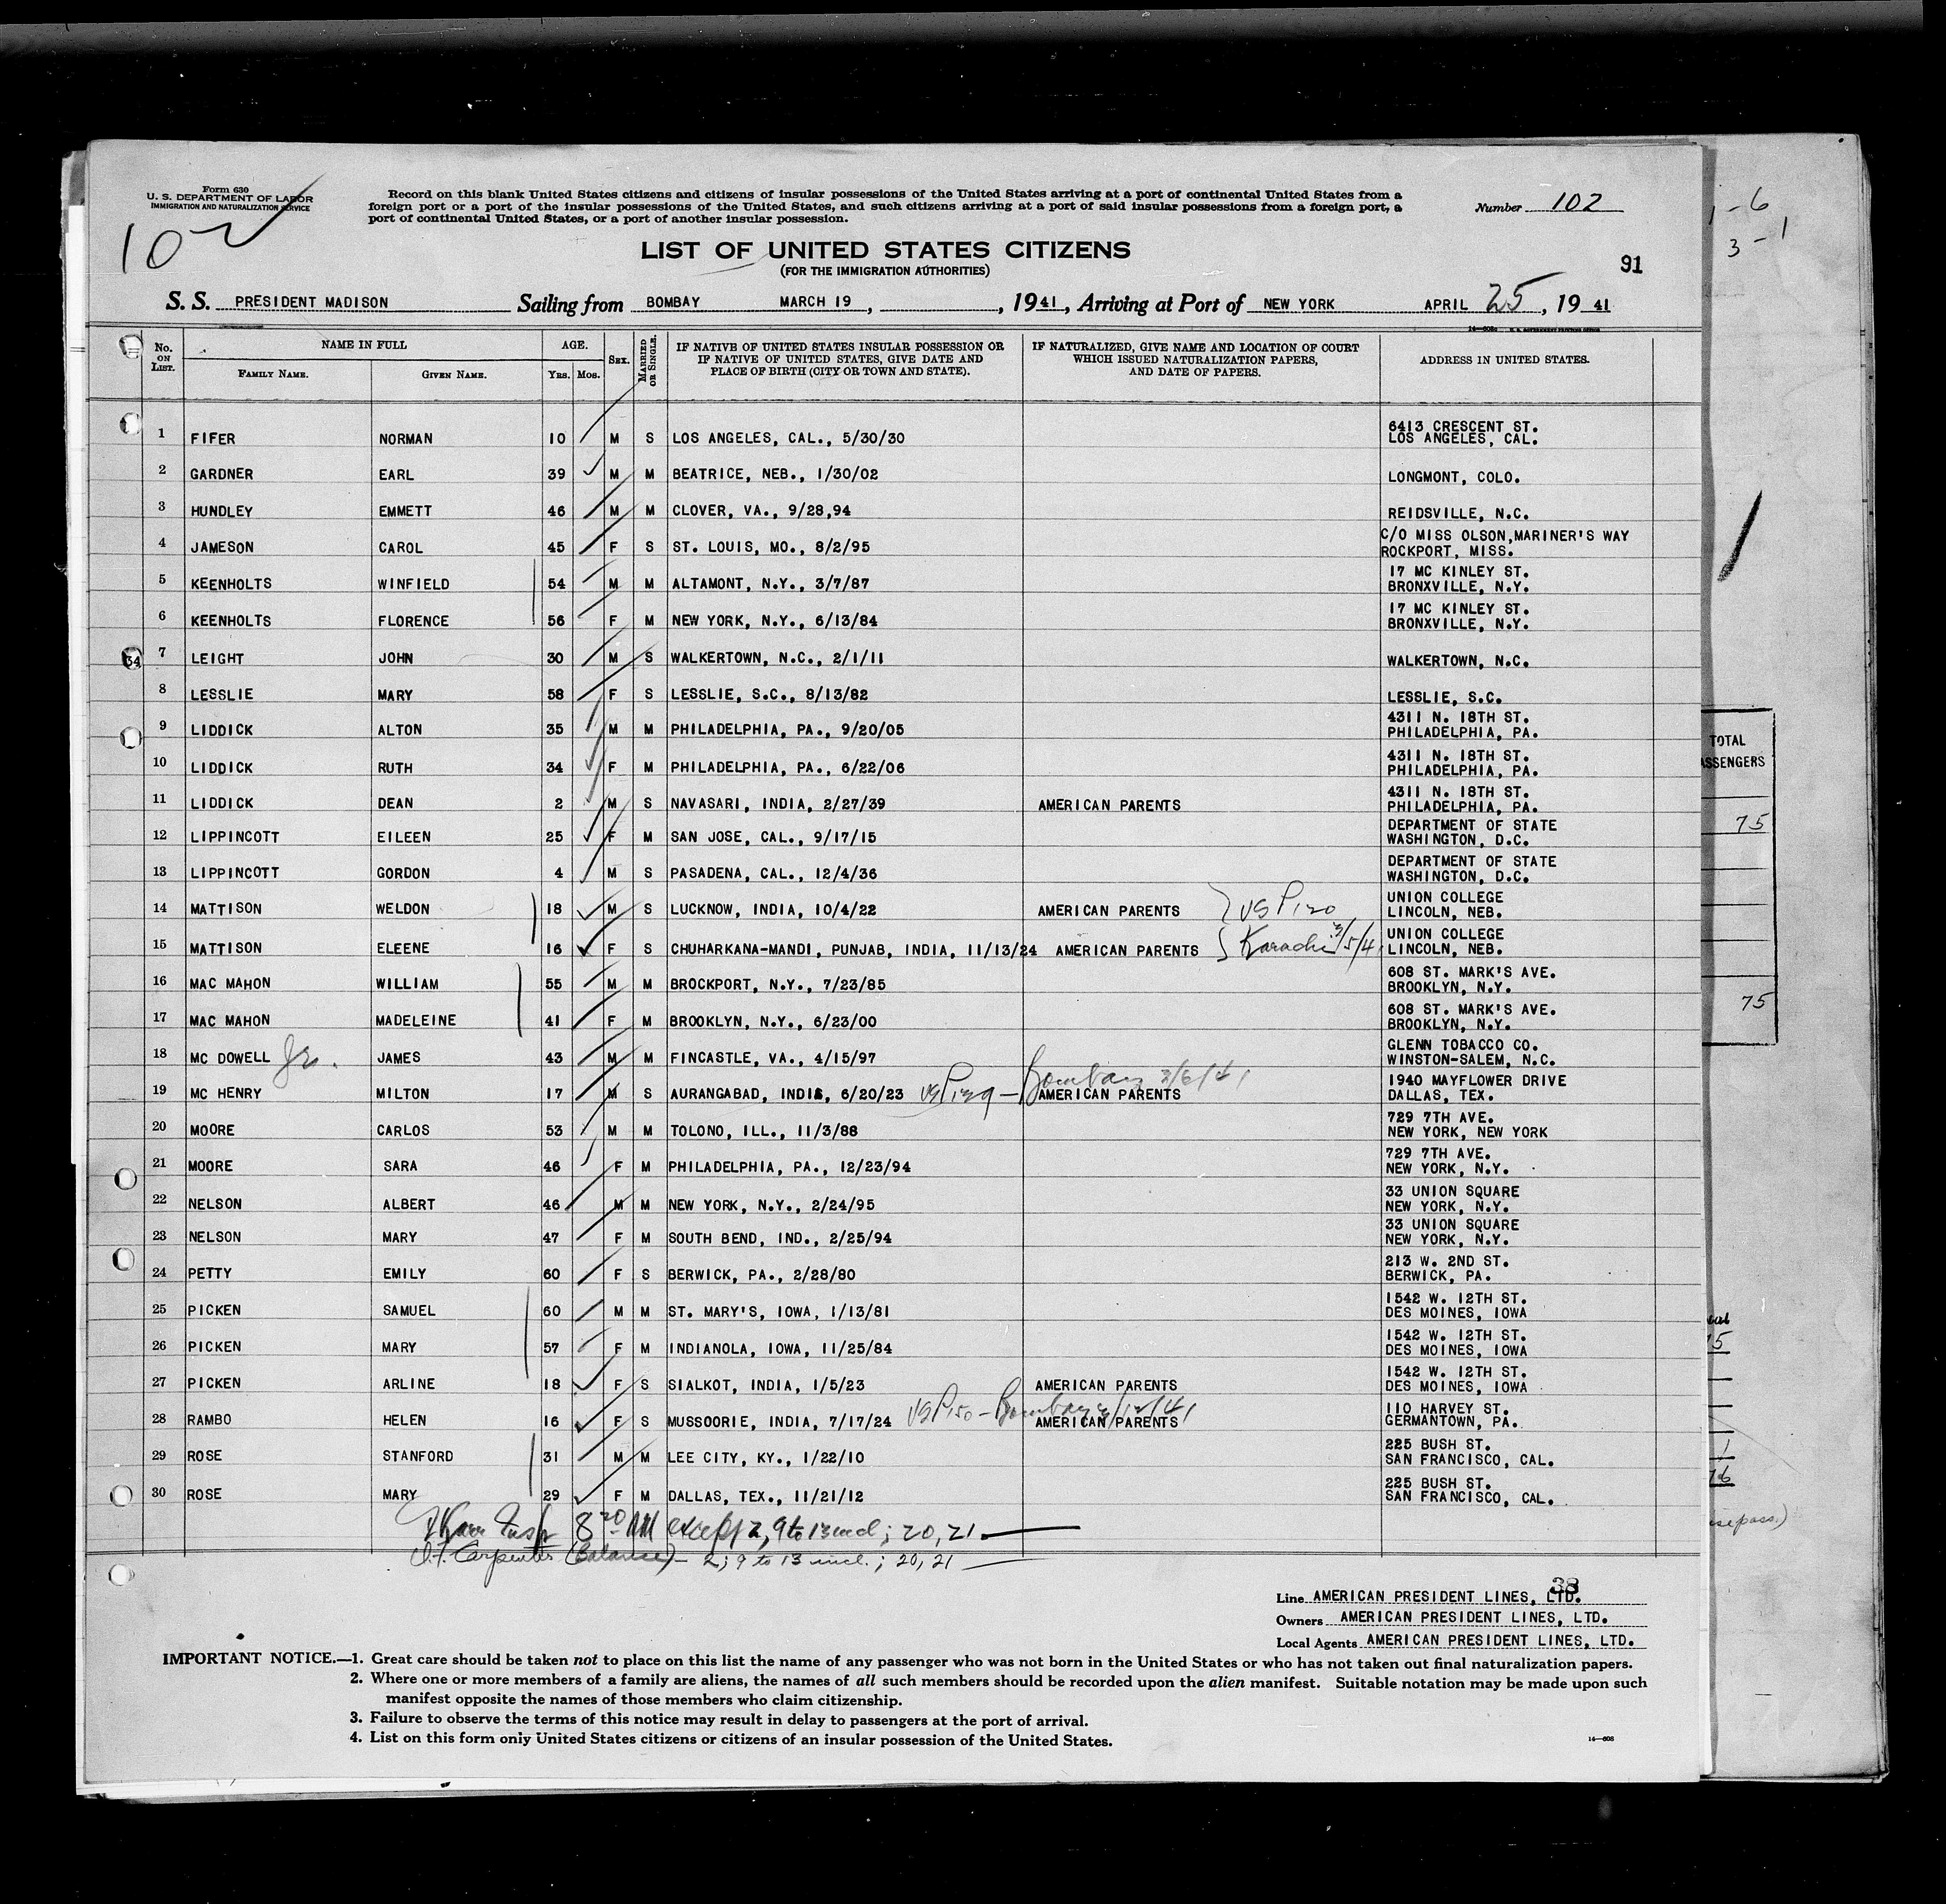 Form 630
U. S. DEPARTMENT OF LABOR
IMMIGRATION AND NATURALIZATION SERVICE
102
Record on this blank United States citizens and citizens of insular possessions of the United States arriving at a port of continental United States from a
foreign port or a port of the insular possessions of the United States, and such citizens arriving at a port of said insular possessions from a foreign port, a
port of continental United States, or a port of another insular possession.
Number 102
LIST OF UNITED STATES CITIZENS
(FOR THE IMMIGRATION AUTHORITIES)
91
S. S. PRESIDENT MADISON Sailing from BOMBAY MARCH 19, , 1941, Arriving at Port of NEW YORK APRIL 25, 1941
No. ON LIST. NAME IN FULL FAMILY NAME. GIVEN NAME. AGE. YRS. MOS. SEX. MARRIED OR SINGLE. IF NATIVE OF UNITED STATES INSULAR POSSESSION OR IF NATIVE OF UNITED STATES, GIVE DATE AND PLACE OF BIRTH (CITY OR TOWN AND STATE). IF NATURALIZED, GIVE NAME AND LOCATION OF COURT WHICH ISSUED NATURALIZATION PAPERS, AND DATE OF PAPERS. ADDRESS IN UNITED STATES.
1 FIFER NORMAN 10 M S LOS ANGELES, CAL., 5/30/30 6413 CRESCENT ST. LOS ANGELES, CAL.
2 GARDNER EARL 39 M M BEATRICE, NEB., 1/30/02 LONGMONT, COLO.
3 HUNDLEY EMMETT 46 M M CLOVER, VA., 9/28,94 REIDSVILLE, N.C.
4 JAMESON CAROL 45 F S ST. LOUIS, MO., 8/2/95 C/O MISS OLSON,MARINER'S WAY ROCKPORT, MISS.
5 KEENHOLTS WINFIELD 54 M M ALTAMONT, N.Y., 3/7/87 17 MC KINLEY ST. BRONXVILLE, N.Y.
6 KEENHOLTS FLORENCE 56 F M NEW YORK, N.Y., 6/13/84 17 MC KINLEY ST. BRONXVILLE, N.Y.
34
7 LEIGHT JOHN 30 M S WALKERTOWN, N.C., 2/1/11 WALKERTOWN, N.C.
8 LESSLIE MARY 58 F S LESSLIE, S.C., 8/13/82 LESSLIE, S.C.
9 LIDDICK ALTON 35 M M PHILADELPHIA, PA., 9/20/05 4311 N. 18TH ST. PHILADELPHIA, PA.
10 LIDDICK RUTH 34 F M PHILADELPHIA, PA., 6/22/06 4311 N. 18TH ST. PHILADELPHIA, PA.
11 LIDDICK DEAN 2 M S NAVASARI, INDIA, 2/27/39 AMERICAN PARENTS 4311 N. 18TH ST. PHILADELPHIA, PA.
12 LIPPINCOTT EILEEN 25 F M SAN JOSE, CAL., 9/17/15 DEPARTMENT OF STATE WASHINGTON, D.C.
13 LIPPINCOTT GORDON 4 M S PASADENA, CAL., 12/4/36 DEPARTMENT OF STATE WASHINGTON, D.C.
14 MATTISON WELDON 18 M S LUCKNOW, INDIA, 10/4/22 AMERICAN PARENTS UNION COLLEGE LINCOLN, NEB.
15 MATTISON ELEENE 16 F S CHUHARKANA-MANDI, PUNJAB, INDIA, 11/13/24 AMERICAN PARENTS Karachi 3/5/41 UNION COLLEGE LINCOLN, NEB.
16 MAC MAHON WILLIAM 55 M M BROCKPORT, N.Y., 7/23/85 608 ST. MARK'S AVE. BROOKLYN, N.Y.
17 MAC MAHON MADELEINE 41 F M BROOKLYN, N.Y., 6/23/00 608 ST. MARK'S AVE. BROOKLYN, N.Y.
18 MC DOWELL Jr. JAMES 43 M M FINCASTLE, VA., 4/15/97 GLENN TOBACCO CO. WINSTON-SALEM, N.C.
19 MC HENRY MILTON 17 M S AURANGABAD, INDIA, 6/20/23 Bombay 3/6/41 AMERICAN PARENTS 1940 MAYFLOWER DRIVE DALLAS, TEX.
20 MOORE CARLOS 53 M M TOLONO, ILL., 11/3/88 729 7TH AVE. NEW YORK, NEW YORK
21 MOORE SARA 46 F M PHILADELPHIA, PA., 12/23/94 729 7TH AVE. NEW YORK, N.Y.
22 NELSON ALBERT 46 M M NEW YORK, N.Y., 2/24/95 33 UNION SQUARE NEW YORK, N.Y.
23 NELSON MARY 47 F M SOUTH BEND, IND., 2/25/94 33 UNION SQUARE NEW YORK, N.Y.
24 PETTY EMILY 60 F S BERWICK, PA., 2/28/80 213 W. 2ND ST. BERWICK, PA.
25 PICKEN SAMUEL 60 M M ST. MARY'S, IOWA, 1/13/81 1542 W. 12TH ST. DES MOINES, IOWA
26 PICKEN MARY 57 F M INDIANOLA, IOWA, 11/25/84 1542 W. 12TH ST. DES MOINES, IOWA
27 PICKEN ARLINE 18 F S SIALKOT, INDIA, 1/5/23 AMERICAN PARENTS 1542 W. 12TH ST. DES MOINES, IOWA
28 RAMBO HELEN 16 F S MUSSOORIE, INDIA, 7/17/24 Bombay AMERICAN PARENTS 110 HARVEY ST. GERMANTOWN, PA.
29 ROSE STANFORD 31 M M LEE CITY, KY., 1/22/10 225 BUSH ST. SAN FRANCISCO, CAL.
30 ROSE MARY 29 F M DALLAS, TEX., 11/21/12 225 BUSH ST. SAN FRANCISCO, CAL.
Insp except 2, 9 to 13 incl; 20, 21
Carpenter (Balance) - 2; 9 to 13 incl.; 20, 21
38
Line AMERICAN PRESIDENT LINES, LTD.
Owners AMERICAN PRESIDENT LINES, LTD.
Local Agents AMERICAN PRESIDENT LINES, LTD.
IMPORTANT NOTICE.—1. Great care should be taken not to place on this list the name of any passenger who was not born in the United States or who has not taken out final naturalization papers.
2. Where one or more members of a family are aliens, the names of all such members should be recorded upon the alien manifest. Suitable notation may be made upon such
manifest opposite the names of those members who claim citizenship.
3. Failure to observe the terms of this notice may result in delay to passengers at the port of arrival.
4. List on this form only United States citizens or citizens of an insular possession of the United States.
14—608
3-1
TOTAL
75
75